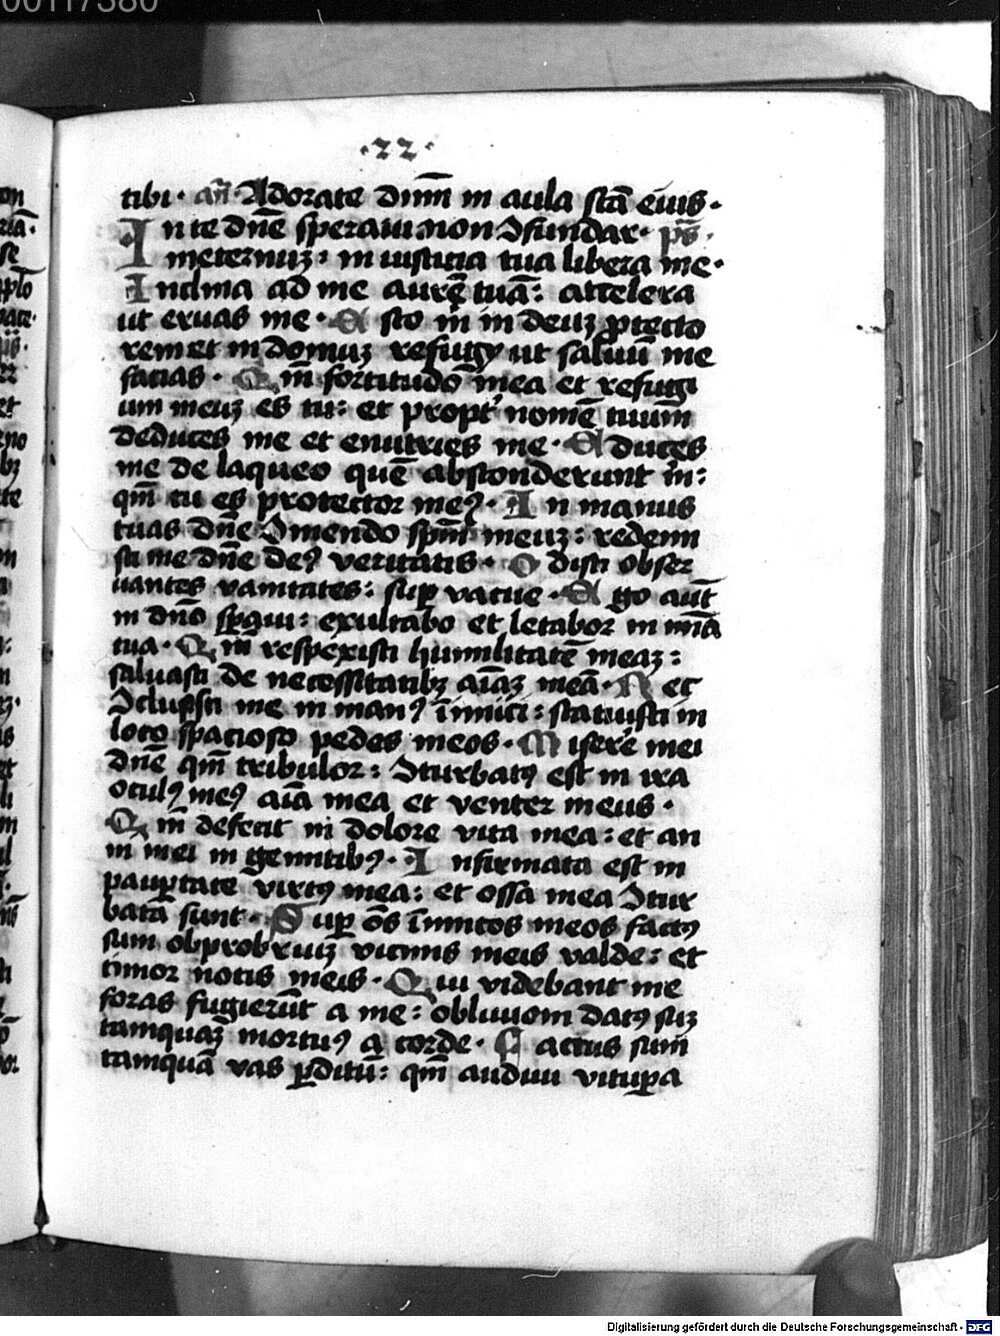 00117380
·22·
tibi· an̄· Adorate dnm̄ in aula sc̄tā eius·
In te dn̄e speraui: non ɔfundar· ps̄·
in eternuʒ: in iusticia tua libera me·
Inclina ad me aurē tuā: accelera
ut eruas me· Esto m̄ in deuʒ ꝓtecto
rem et in domuʒ refugij ut saluū me
facias· Qm̄ fortitudo mea et refugi
um meuʒ es tu: et propt᷑ nomē tuum
deduces me et enutries me· Educes
me de laqueo quē absconderunt m̄:
qm̄ tu es protector meꝰ· In manus
tuas dn̄e ɔmendo spm̄ meuʒ: redemi
sti me dn̄e deꝰ veritatis· Odisti obser
uantes vanitates: suꝑ vacue· Ego aut̄
in dn̄o sꝑaui: exultabo et letabor in mīa
tua· Qm̄ respexisti humilitatē meaʒ:
saluasti de necessitatibʒ aīaʒ meā· Nec
ɔclusisti me in manꝰ inīmici: statuisti in
loco spacioso pedes meos· Misere mei
dn̄e qm̄ tribulor: ɔturbatꝰ est in ira
oculꝰ meꝰ aīa mea et venter meus·
Qm̄ defecit in dolore vita mea: et an
ni mei in gemitibꝰ· Infirmata est in
pauꝑtate virtꝰ mea: et ossa mea ɔtur
bata sunt· Suꝑ oēs inīmicos meos factꝰ
sum obprobriuʒ vicinis meis valde: et
timor notis meis· Qui videbant me
foras fugierūt a me: obliuioni datꝰ suʒ
tamquaʒ mortuꝰ a corde· Factus sum
tamquā vas ꝑditū: qm̄ audiui vituꝑa
Digitalisierung gefördert durch die Deutsche Forschungsgemeinschaft - DFG